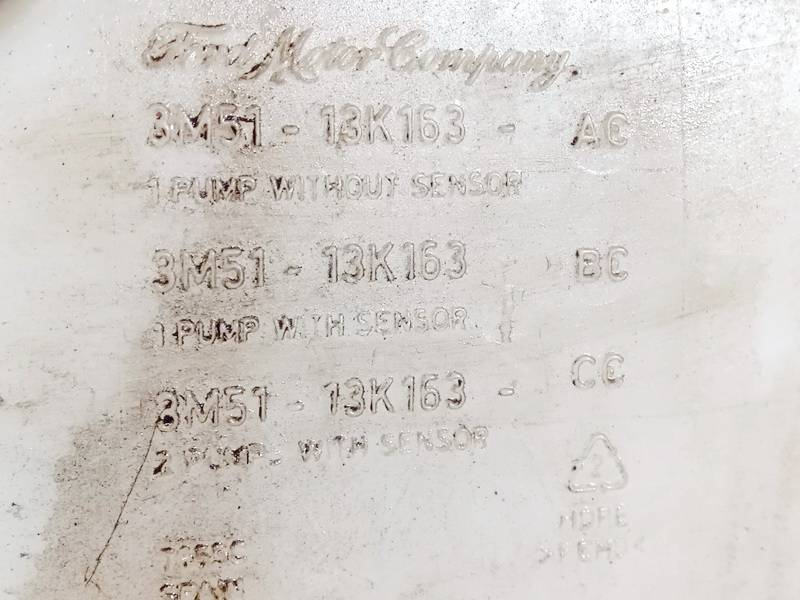 Ford Motor Company.
3M51 - 13K163 - AC
1 PUMP WITHOUT SENSOR
3M51 - 13K163 BC
1 PUMP WITH SENSOR
3M51 - 13K163 - CC
2 PUMPS WITH SENSOR
2
HDPE
SPAIN